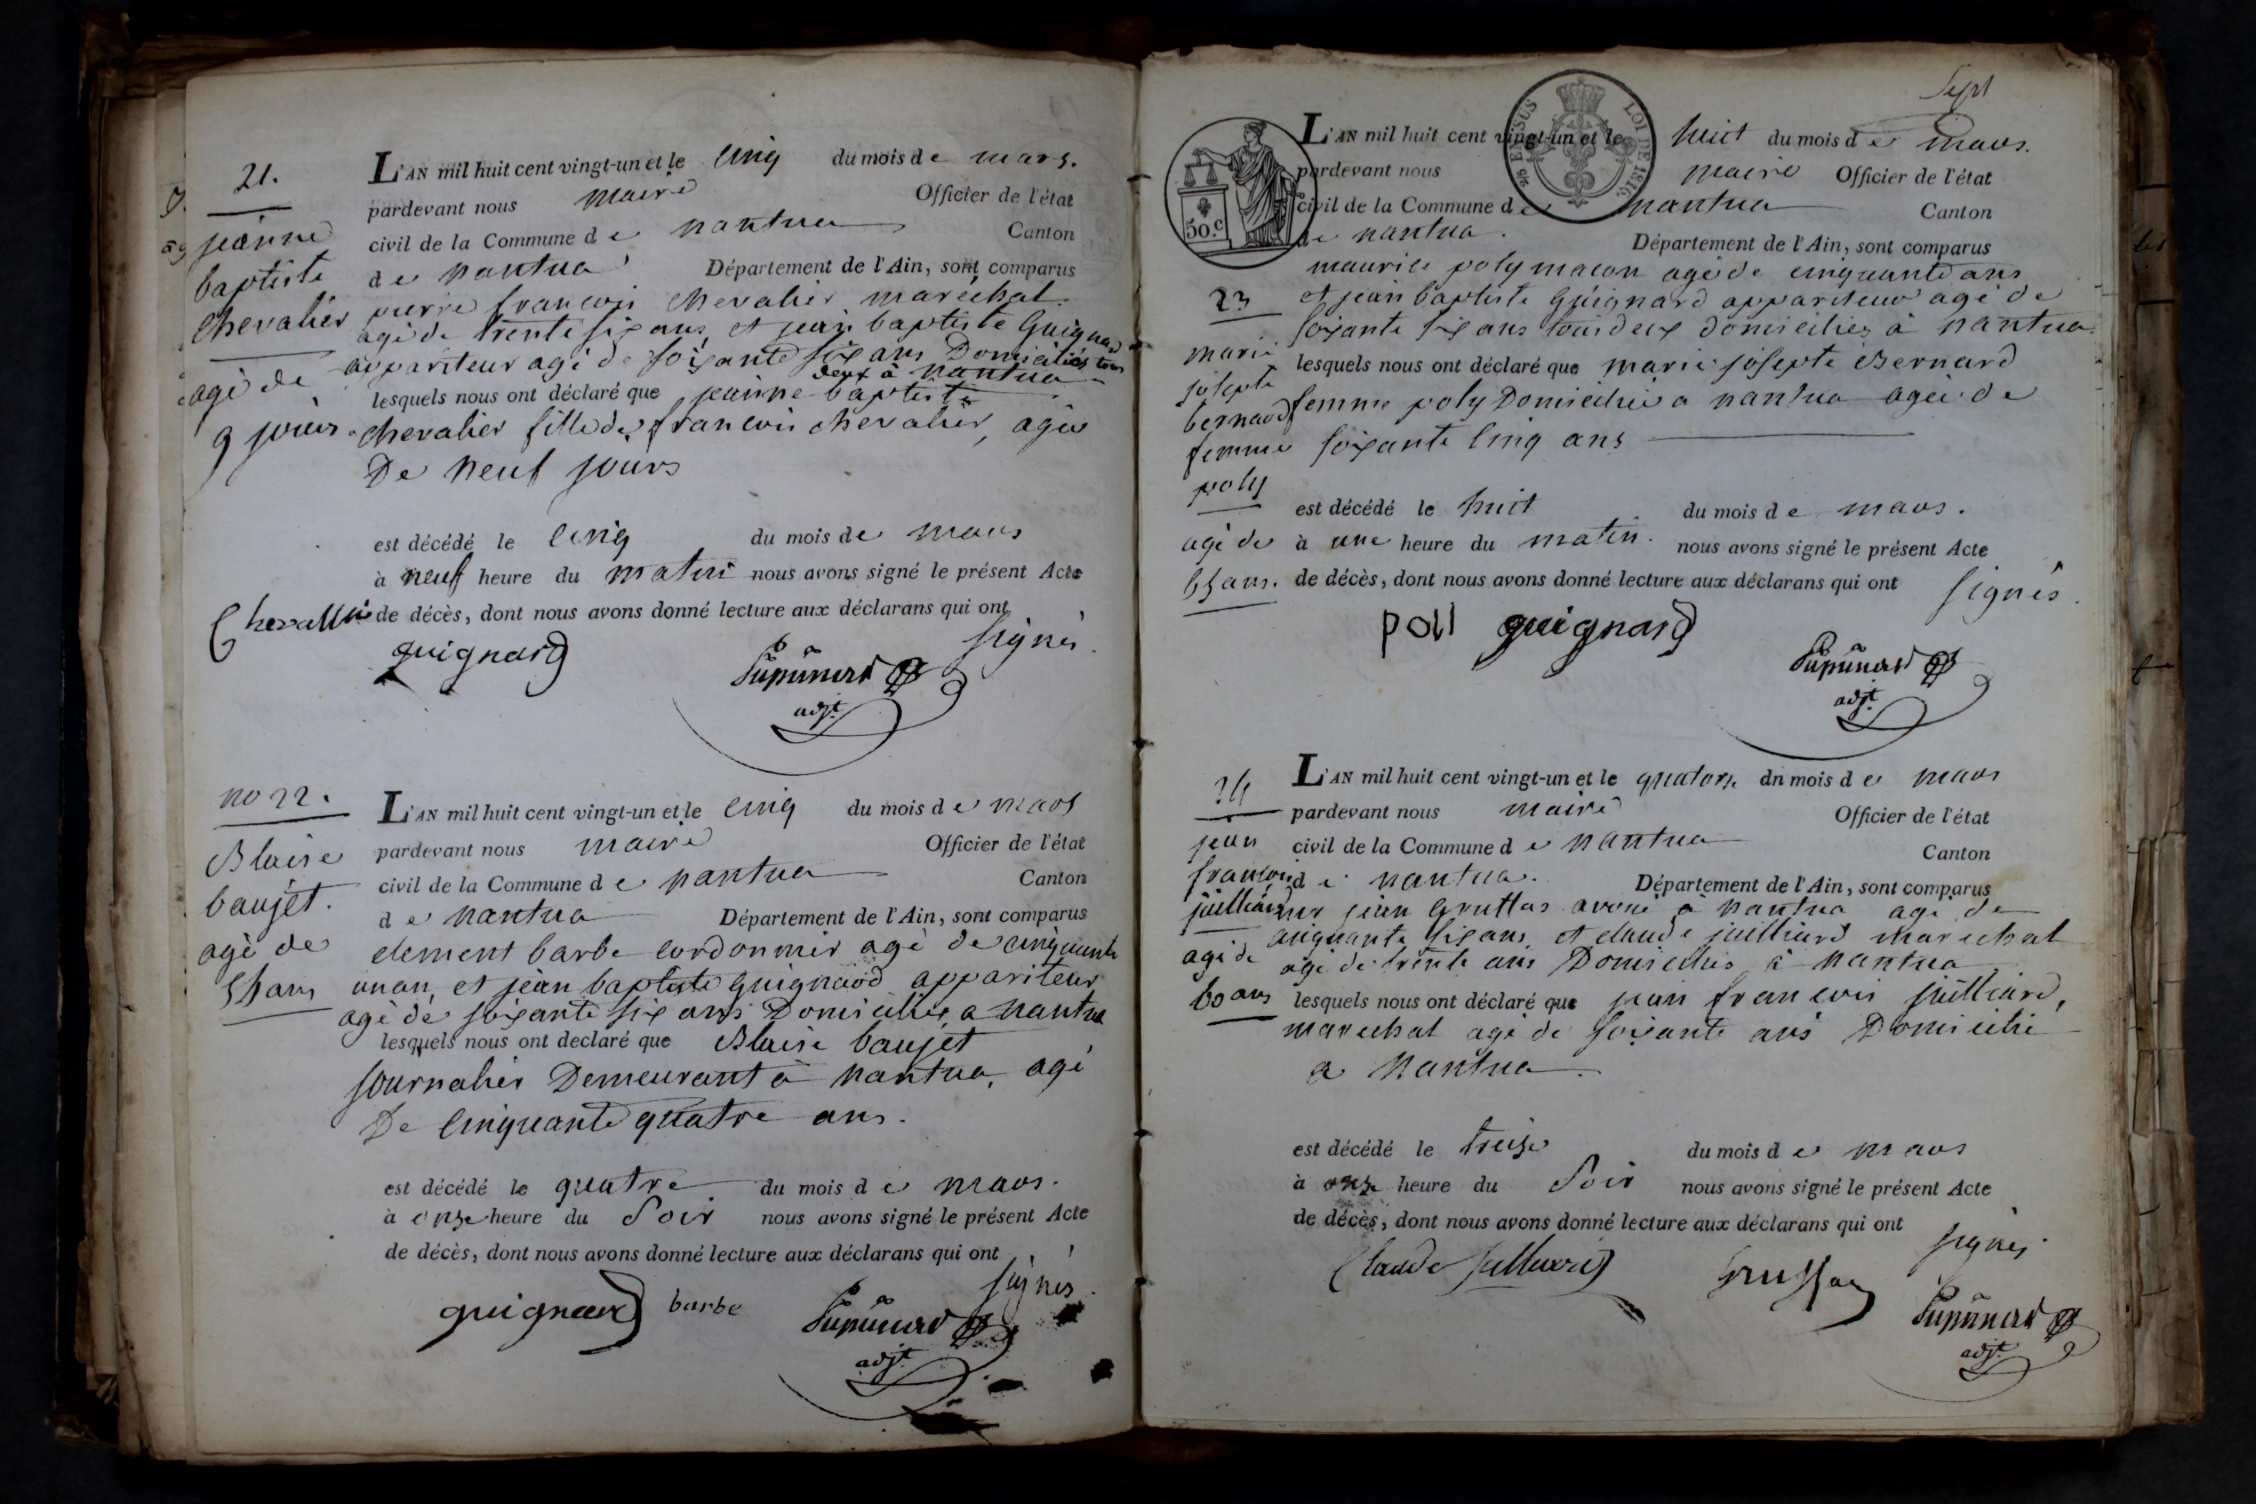 21.
jeanne
baptiste
chevalier
agé de
9 jours.
L'AN mil huit cent vingt-un et le cinq du mois de mars.
pardevant nous maire Officier de l'état
civil de la Commune de nantua Canton
de nantua Département de l'Ain, sont comparus
pierre francois chevalier maréchal
agé de trente six ans et jean baptiste Guignard
appariteur agé de soixante six ans Domiciliés tous
deux à nantua
lesquels nous ont déclaré que jeanne baptiste
chevalier fille de francois chevalier, agée
De neuf jours
est décédé le cinq du mois de mars
à neuf heure du matin nous avons signé le présent Acte
de décès, dont nous avons donné lecture aux déclarans qui ont
signés.
Chevallier
guignard
adjt.
no 22.
Blaise
baujet.
agé de
54 ans
L'AN mil huit cent vingt-un et le cinq du mois de mars
pardevant nous maire Officier de l'état
civil de la Commune de nantua Canton
de nantua Département de l'Ain, sont comparus
clement barbe cordonnier agé de cinquante
un an, et jean baptiste guignard appariteur
agé de soixante six ans Domiciliés a nantua
lesquels nous ont declaré que Blaise baujet
journalier Demeurant à nantua, agé
De cinquante quatre ans.
est décédé le quatre du mois de mars.
à onze heure du Soir nous avons signé le présent Acte
de décès, dont nous avons donné lecture aux déclarans qui ont
signés.
guignard barbe
adjt.
Sept
50.c
EN SUS
LOI DE 1816.
23
marie
josepte
bernard
femme
poly
agé de
65 ans.
L'AN mil huit cent vingt-un et le huit du mois de mars.
pardevant nous maire Officier de l'état
civil de la Commune de nantua Canton
de nantua. Département de l'Ain, sont comparus
maurice poly macon agé de cinquante ans
et jean baptiste Guignard appariteur agé de
soixante six ans tous deux domiciliés à nantua.
lesquels nous ont déclaré que marie josepte Bernard
femme poly Domiciliée a nantua agée de
soixante cinq ans
est décédé le huit du mois de mars.
à une heure du matin. nous avons signé le présent Acte
de décès, dont nous avons donné lecture aux déclarans qui ont
signés.
poli guignard
adjt.
24
jean
francois
juilliard
agé de
60 ans
L'AN mil huit cent vingt-un et le quatorze dn mois de mars
pardevant nous maire Officier de l'état
civil de la Commune de nantua Canton
de nantua. Département de l'Ain, sont comparus
jean avoué à nantua agé de
cinquante six ans et claude juilliard marechal
agé de trente ans Domiciliés à nantua
lesquels nous ont déclaré que jean francois juilliard,
marechal agé de soixante ans Domicilié
a nantua.
est décédé le treize du mois de mars
à onze heure du Soir nous avons signé le présent Acte
de décès, dont nous avons donné lecture aux déclarans qui ont
signés.
Claude
adjt.